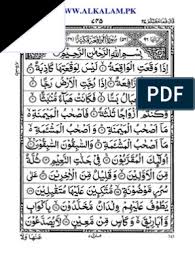 WWW.ALKALAM.PK
٧٣٥
بِسْمِ اللهِ الرَّحْمٰنِ الرَّحِيْمِ
اِذَا وَقَعَتِ الْوَاقِعَةُ لَيْسَ لِوَقْعَتِهَا كَاذِبَةٌ
رَّافِعَةٌ اِذَا رُجَّتِ الْاَرْضُ رَجًّا
بَسًّا فَكَانَتْ هَبَآءً مُّنْۢبَثًّا
PDF
ثَلٰثَةً فَاَصْحٰبُ الْمَيْمَنَةِ
الْمَيْمَنَةِ وَاَصْحٰبُ الْمَشْـَٔمَةِ
الْمَشْـَٔمَةِ وَالسّٰبِقُوْنَ السّٰبِقُوْنَ
اُولٰٓئِكَ الْمُقَرَّبُوْنَ فِيْ جَنّٰتِ النَّعِيْمِ ثُلَّةٌ مِّنَ
الْاَوَّلِيْنَ وَقَلِيْلٌ مِّنَ الْاٰخِرِيْنَ عَلٰى
سُرُرٍ مَّوْضُوْنَةٍ مُّتَّكِـِٕيْنَ عَلَيْهَا مُتَقٰبِلِيْنَ
يَطُوْفُ عَلَيْهِمْ وِلْدَانٌ مُّخَلَّدُوْنَ بِاَكْوَابٍ
وَّاَبَارِيْقَ وَكَاْسٍ مِّنْ مَّعِيْنٍ لَّا يُصَدَّعُوْنَ